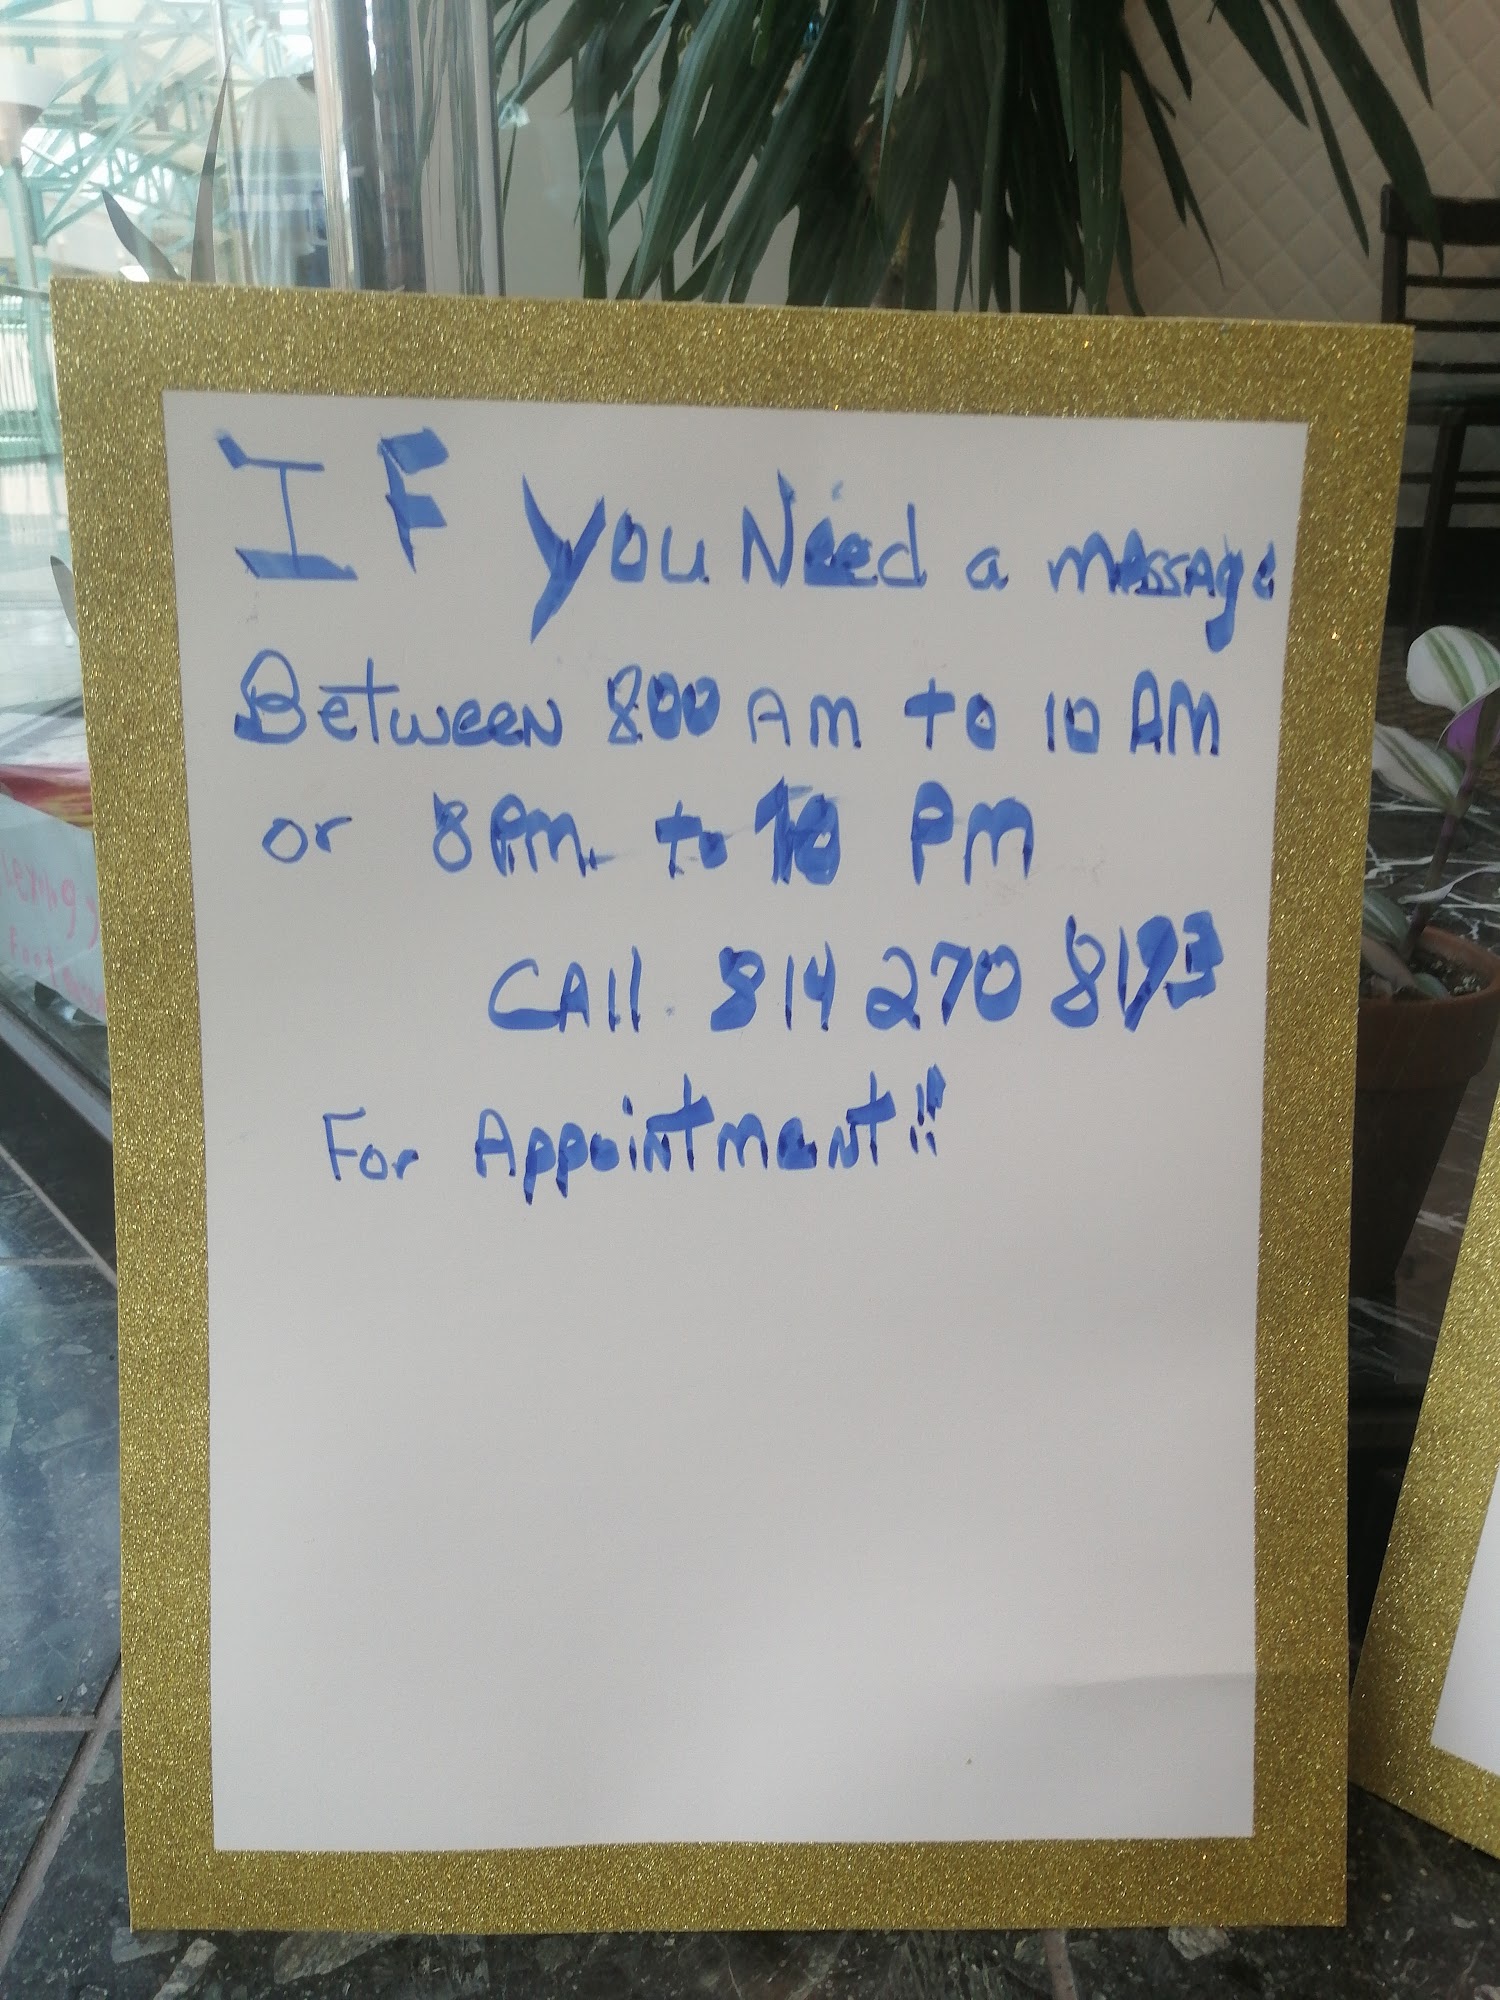 IF you Need a massage
Between 800 AM to 10 AM
or 8 Pm to 10 PM
CAll 814 270 8193
For Appointment!!
Foot